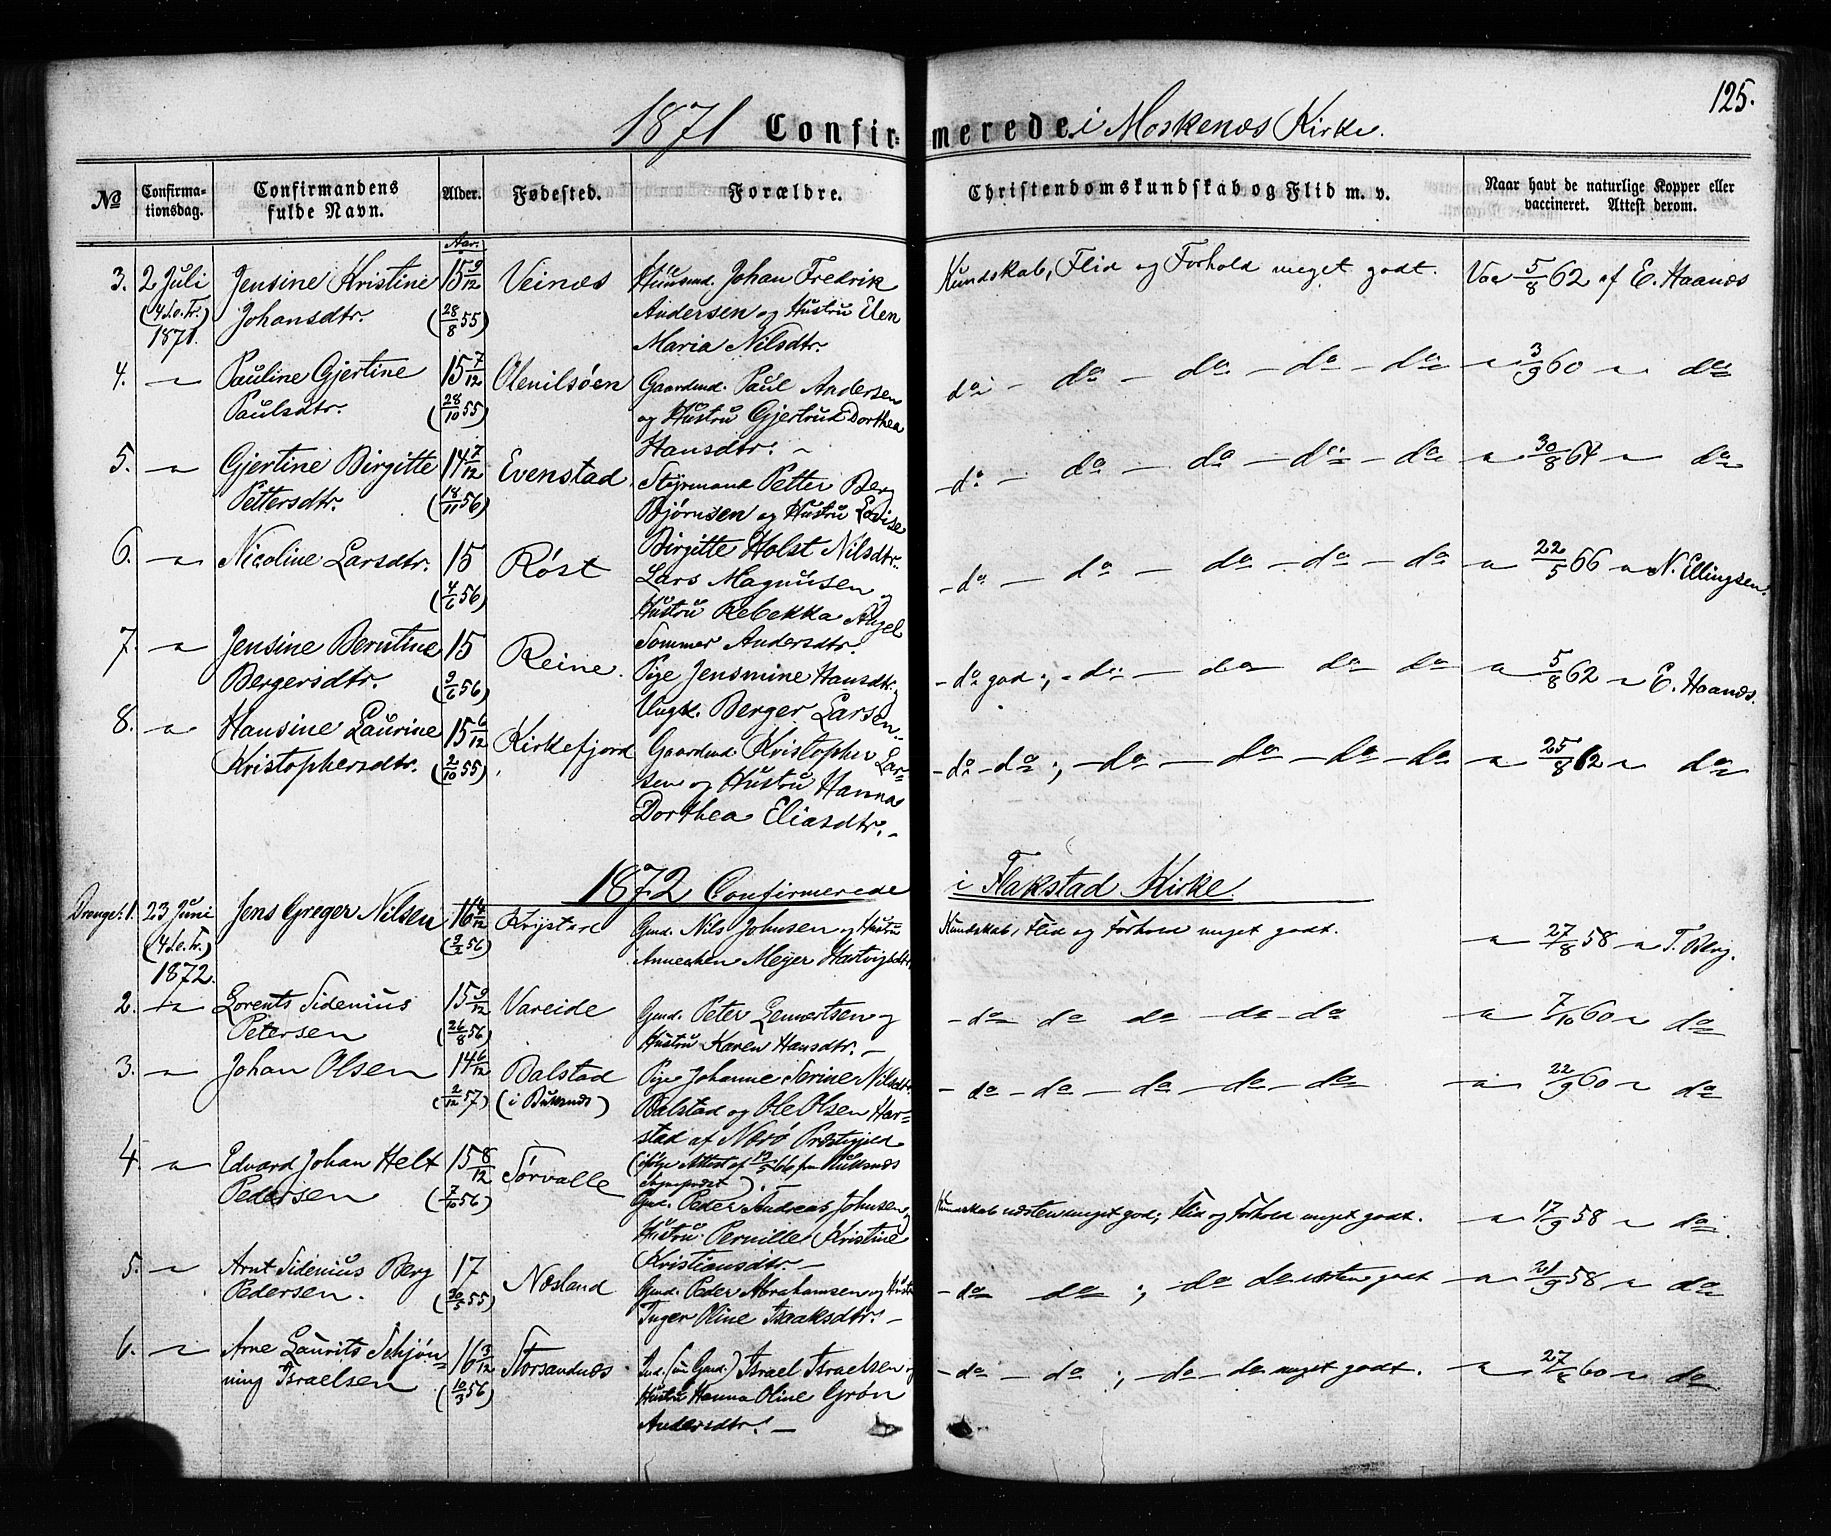 125.
1871 Confirmerede i Moskenæs Kirke.
No Confirmationsdag. Confirmandens fulde Navn. Alder. Fødested. Forældre. Christendomskundskab og Flid m. v. Naar havt de naturlige Kopper eller vaccineret. Attest derom.
Aar.
3. 2 Juli Jensine Kristine 15 9/12 Veinæs Huusmd. Johan Fredrik Kundskab, Flid og Forhold meget godt. Vac 5/8 62 af E. Haanæs
(4 S. e. Tr.) Johansdtr. (28/8 55) Andersen og Hustru Elen
1871. Maria Nilsdtr.
4. " Pauline Gjertine 15 7/12 Olenilsøen Gaardmd. Paul Andersen do - do - do - do - do " 3/9 60 " do
Paulsdtr. (28/10 55) og Hustru Gjertrud Dorthea
Hansdtr. -
5. " Gjertine Birgitte 14 7/12 Evenstad. Styrmand Petter Berg - do - do - do - do - do " 30/8 64 " do
Pettersdtr. (18/11 56) Bjørnsen og Hustru Lovise
Birgitte Holst Nilsdtr.
6. " Nicoline Larsdtr. 15 Røst Lars Magnusen og - do - do - do - do - do " 22/5 66 " N. Ellingsen.
(4/6 56) Hustru Rebekka Angel
Sommer Andersdtr.
7. " Jensine Berntine 15 Reine. Pige Jensmine Hansdtr. og - do god; - do - do do do " 5/8 62 " E. Haanæs.
Bergersdtr. (9/6 56) Ungk. Berger Larsen.
8. " Hansine Laurine 15 6/12 Kirkefjord Gaardmd. Kristopher Lar- - do - do; - do - do - do - do " 25/8 62 " do
Kristophersdtr. (2/10 55) sen og Hustru Hanna
Dorthea Eliasdtr. -
1872 Confirmerede i Flakstad Kirke
Drenge: 1. 23 Juni Jens Greger Nilsen 16 4/12 Krystad Gmd. Nils Johnsen og Hustru Kundskab, Flid og Forhold meget godt. " 27/8 58 " T. Berg.
(4 S. e. Tr.) (9/2 56) Annechen Meyer Hartvigsdtr.
1872.
2. " Lorents Sidenius 15 9/12 Vareide Gmd. Peter Lennertsen og - do do do - do - do " 7/10 60 " do
Petersen (26/8 56) Hustru Karen Hansdtr. -
3. " Johan Olsen 14 6/12 Balstad Pige Johanne Sorine Nilsdtr. - do - do - do - do - do " 22/9 60 " do
(2/12 57) (i Buksnæs) Balstad og Ole Olsen Har-
stad af Nærø Præstegjeld
(ifølge Attest af 13/5 66 fra Buksnæs
Sognepræst). -
4. " Edvard Johan Helt 15 8/12 Sørvalle Gmd. Peder Andreas Johnsen og Kundskab næsten meget god; Flid og Forhold meget godt. " 17/9 58 " do.
Pedersen (7/10 56) Hustru Pernille Kristine
Kristiansdtr. -
5. " Arnt Sidenius Berg 17 Næsland Gmd. Peder Abrahamsen og Hustru - do do; do do næsten godt " 21/9 58 " do
Pedersen. (30/5 55) Inger Oline Isaaksdtr. -
6. " Arne Laurits Schjøn- 16 3/12 Storsandnæs Ind. (nu Gmd.) Israel Israelsen og - do - do; - do - do meget godt. " 27/8 60 " do
ning Israelsen (10/3 56) Hustru Hanna Oline Grøn
Andersdtr. -